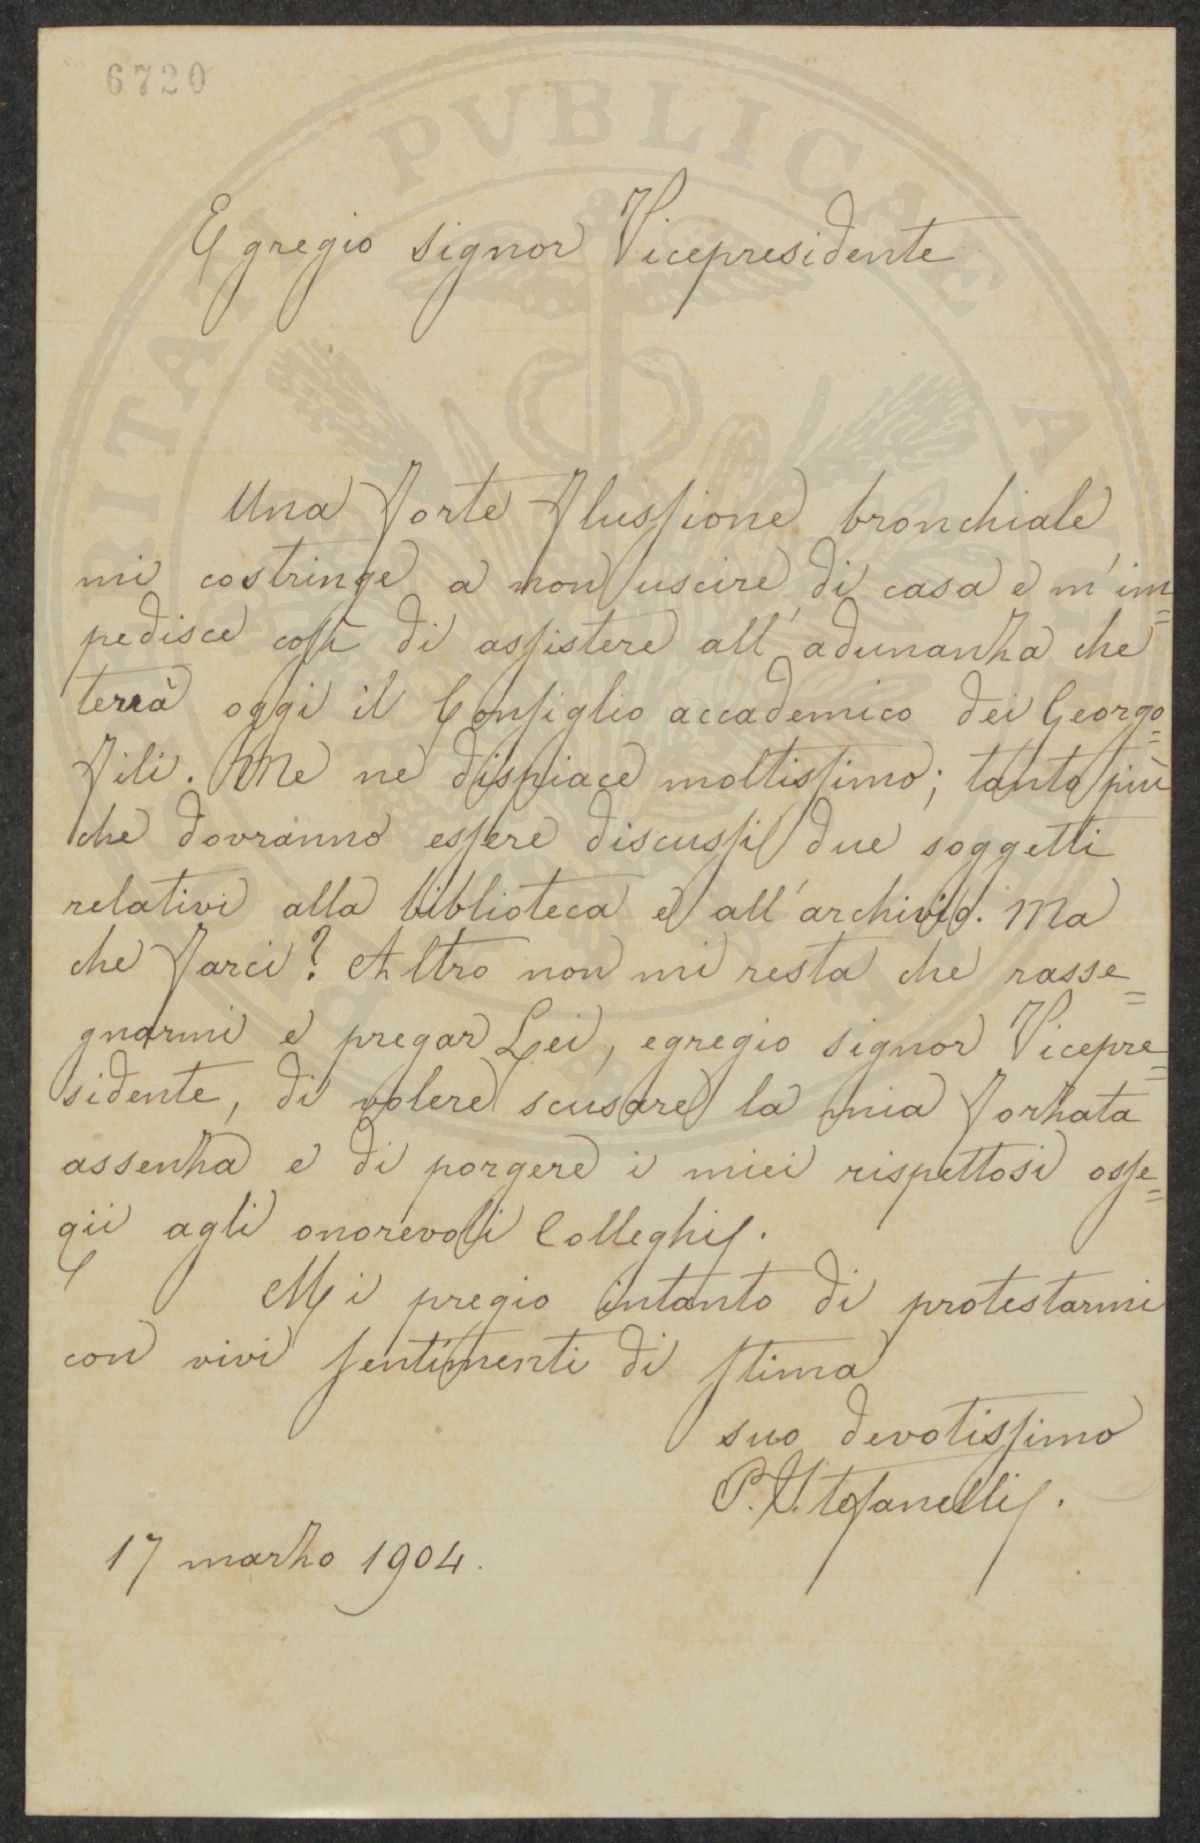 6720
Egregio signor Vicepresidente
Una forte flussione bronchiale
mi costringe a non uscire di casa e m'im=
pedisce così di assistere all'adunanza che
terrà oggi il Consiglio accademico dei Georgo=
fili. Me ne dispiace moltissimo; tanto più
che dovranno essere discussi due soggetti
relativi alla biblioteca e all'archivio. Ma
che farci? Altro non mi resta che rasse=
gnarmi e pregar Lei, egregio signor Vicepre=
sidente, di volere scusare la mia forzata
assenza e di porgere i miei rispettosi osse=
qii agli onorevoli Colleghi.
Mi pregio intanto di protestarmi
con vivi sentimenti di stima
suo devotissimo
P. Stefanelli.
17 marzo 1904.
PVBLICAE